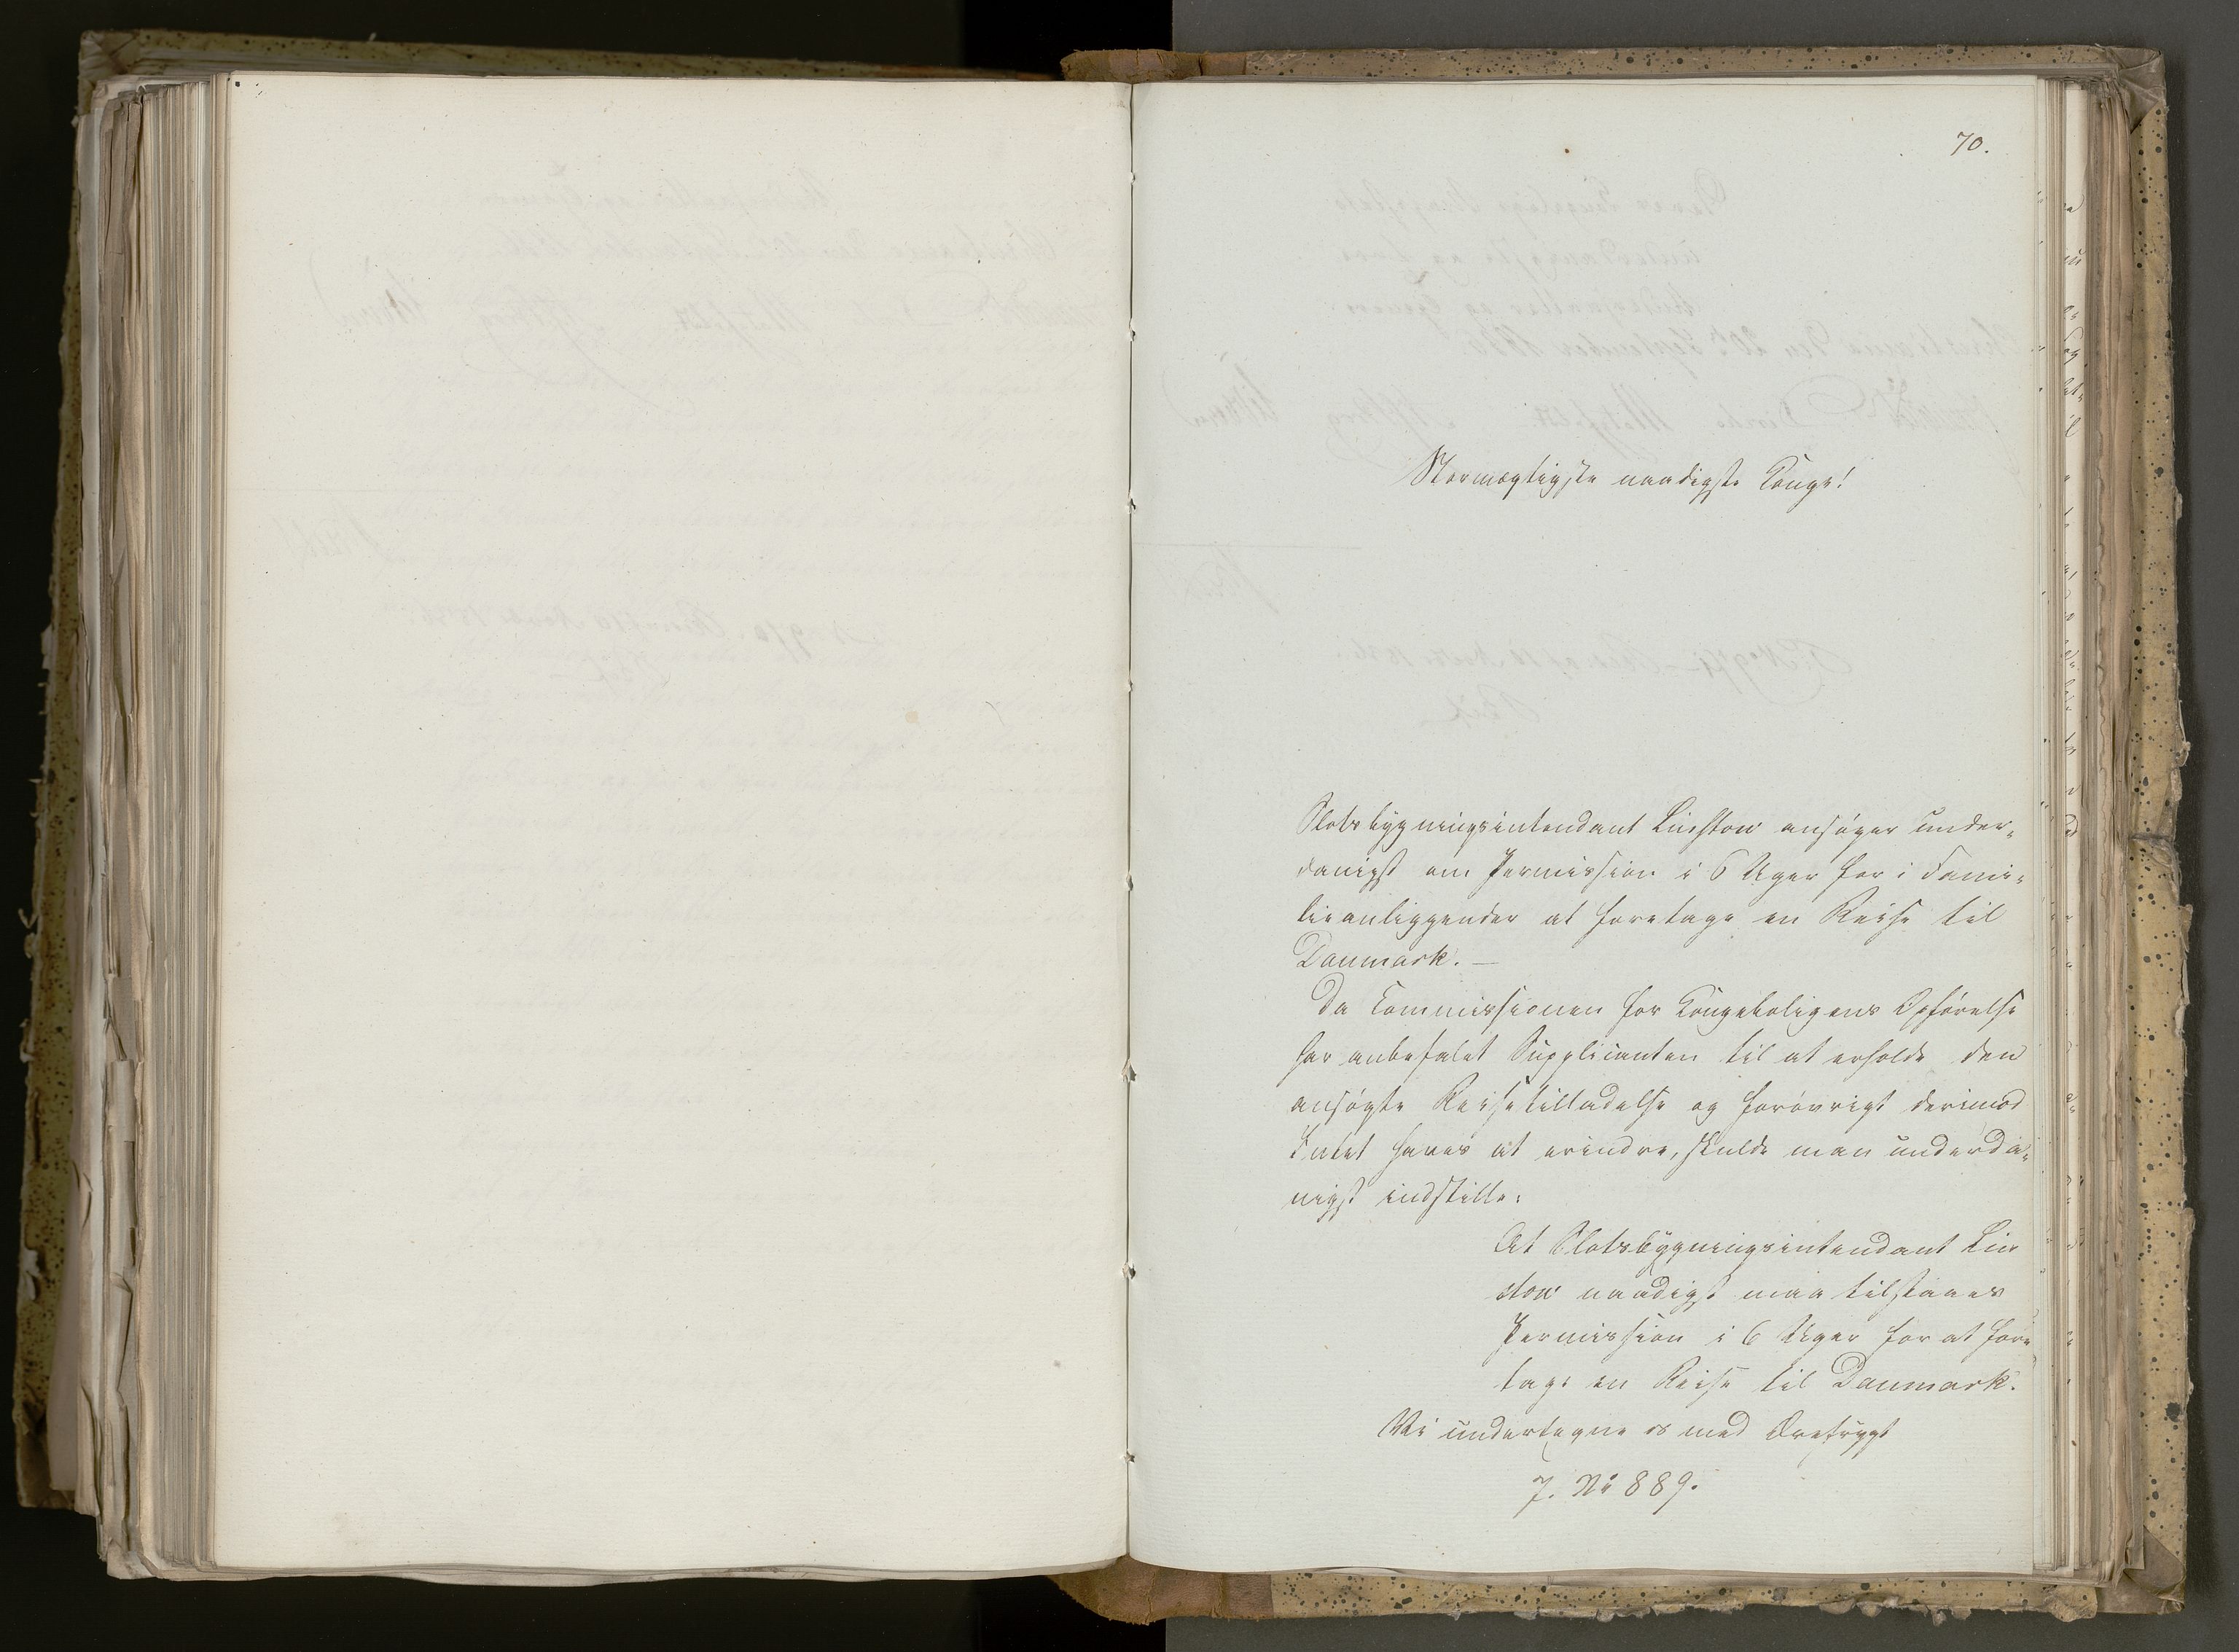 70.
Stormægtigste naadigste Konge!
Slotsbygningsintendant Linstow ansøger under-
danigst om Permission i 6 Uger for i Fami-
lieanliggender at foretage en Reise til
Danmark. —
Da Commissionen for Kongeboligens Opførelse
har anbefalet Supplicanten til at erholde den
ansøgte Reisetilladelse og forøvrigt derimod
Intet haves at erindre, skulde man underda-
nigst indstille:
At Slotsbygningsintendant Lin
stow naadigst maa tilstaaes
Permission i 6 Uger for at fore
tage en Reise til Danmark.
Vi undertegne os med Ærefrygt
J. No 889.